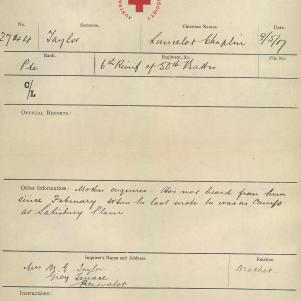 AUSTRA
SOCIETY
No. Surname. Christian Name. Date.
2744 Taylor Lancelot Chaplin 9/5/17
Rank. Regiment, &c. File No.
Pte 6th Reinf of 50th Battn
O/L
OFFICIAL REPORTS:
Other Information: Mother enquires. Has not heard from him
since February when he last wrote he was in Camp
at Salisbury Plain
Inquirer's Name and Address Relation
Mrs M. E. Taylor Mother.
Grey Terrace
Instructions: